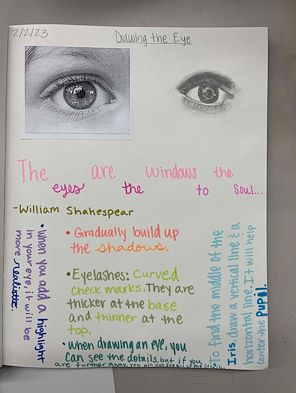 2/2/23
Drawing the Eye
The are windows the
eyes the to Soul...
-William Shakespear
• Gradually build up
the shadows.
• Eyelashes: Curved
check marks. They are
thicker at the base
and thinner at the
top.
• when drawing an eye, you
can see the details, but if you
are further away, you
• when you add a highlight
in your eye, it will be
more realistic.
To find the middle of the
Iris, draw a vertical line & a
horizontal line. It will help
center the Pupil.